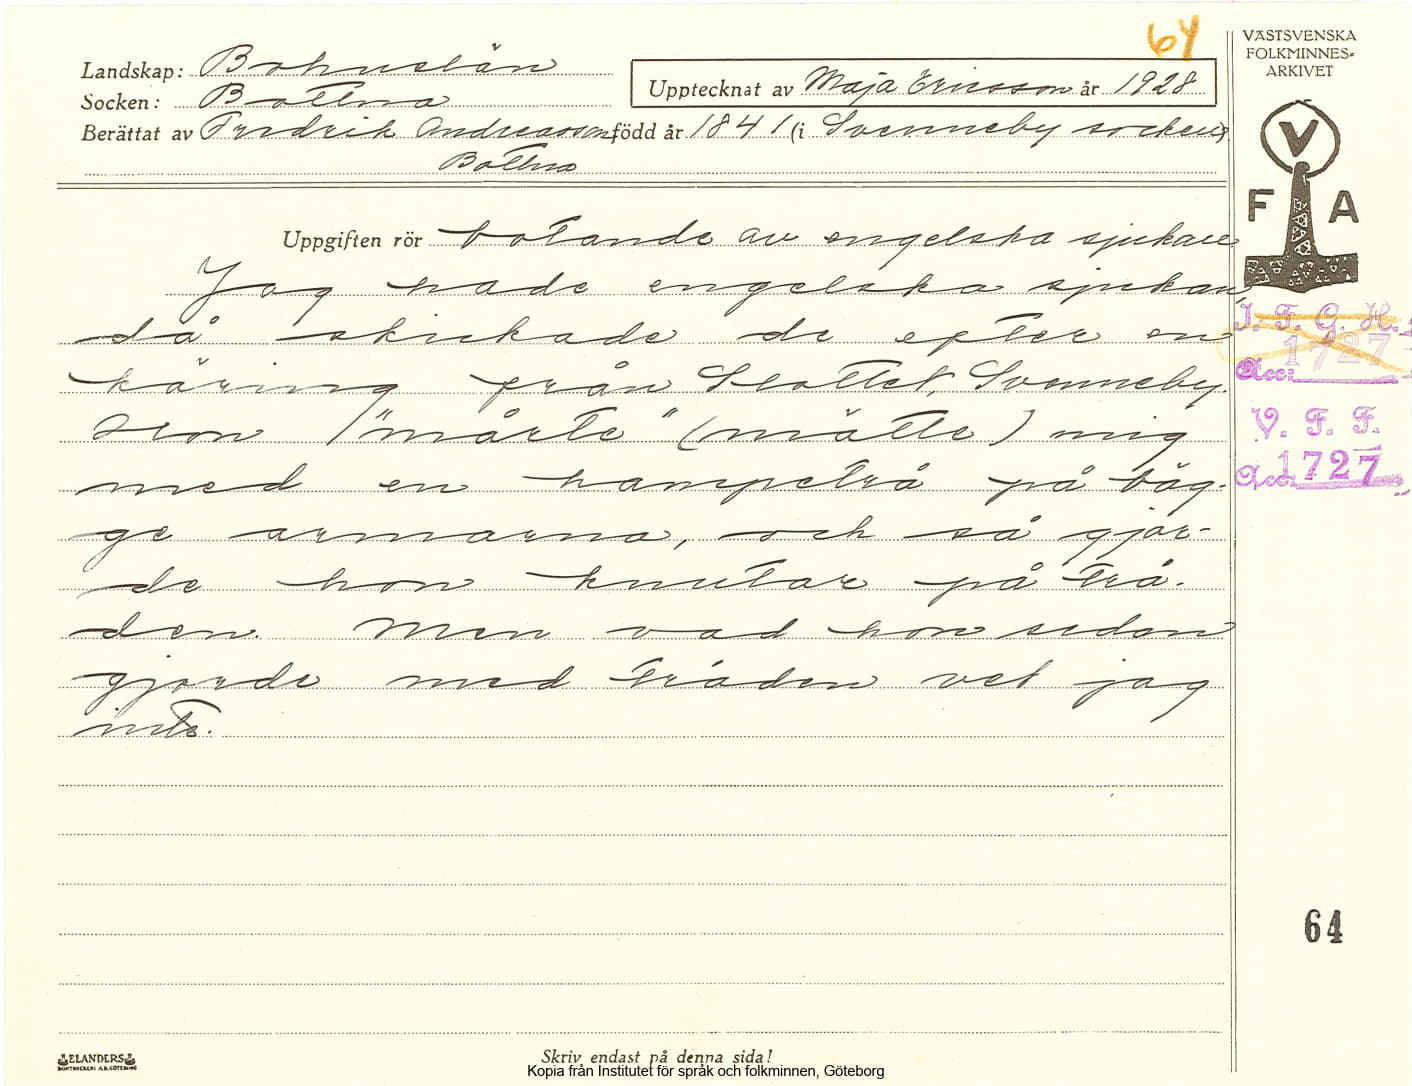 64
VÄSTSVENSKA
FOLKMINNES=
ARKIVET
Landskap: Bohuslän
Socken: Bottna
Upptecknat av Maja Ericsson år 1928
Berättat av Fredrik Andreasson född år 1841 (i Svenneby socken)
Bottna
V
F A
Uppgiften rör botande av engelska sjukan
Jag hade engelska sjukan,
då skickade de efter en
käring från Slottet, Svenneby.
Hon "mårte" (mätte) mig
med en hampetrå på båg-
ge armarna, och så gjor-
de hon knutar på trå-
den. Men vad hon sedan
gjorde med tråden vet jag
inte.
I. F. G. H.
1727
Acc:
V. F. F.
Acc. 1727
64
ELANDERS
BOKTRYCKERI A.B. GÖTEBORG
Skriv endast på denna sida!
Kopia från Institutet för språk och folkminnen, Göteborg